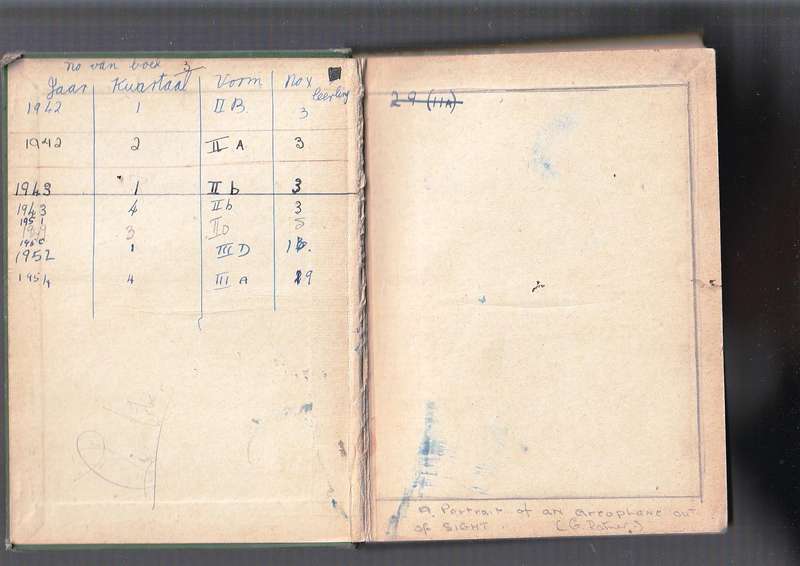 no van boek 3
Jaar Kwartaal Vorm No v leerling
1942 1 II B. 3
1942 2 II A 3
1943 1 II b 3
1943 4 II b 3
1951
3 II D 5
1952 1 III D
1954 4 III A 29
29 (IIA)
A Portrait of an aeroplane out
of SIGHT (G.